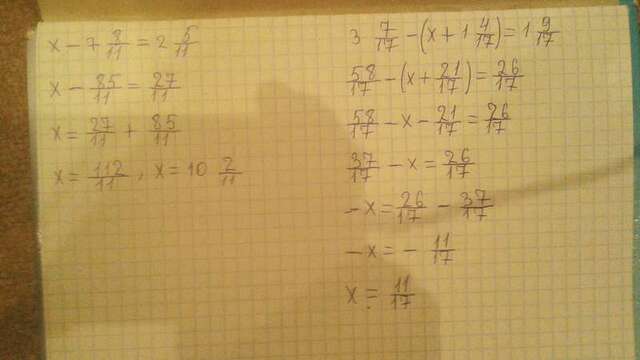 x - 7 8/11 = 2 5/11
x - 85/11 = 27/11
x = 27/11 + 85/11
x = 112/11, x = 10 2/11
3 7/17 - (x + 1 4/17) = 1 9/17
58/17 - (x + 21/17) = 26/17
58/17 - x - 21/17 = 26/17
37/17 - x = 26/17
-x = 26/17 - 37/17
-x = - 11/17
x = 11/17